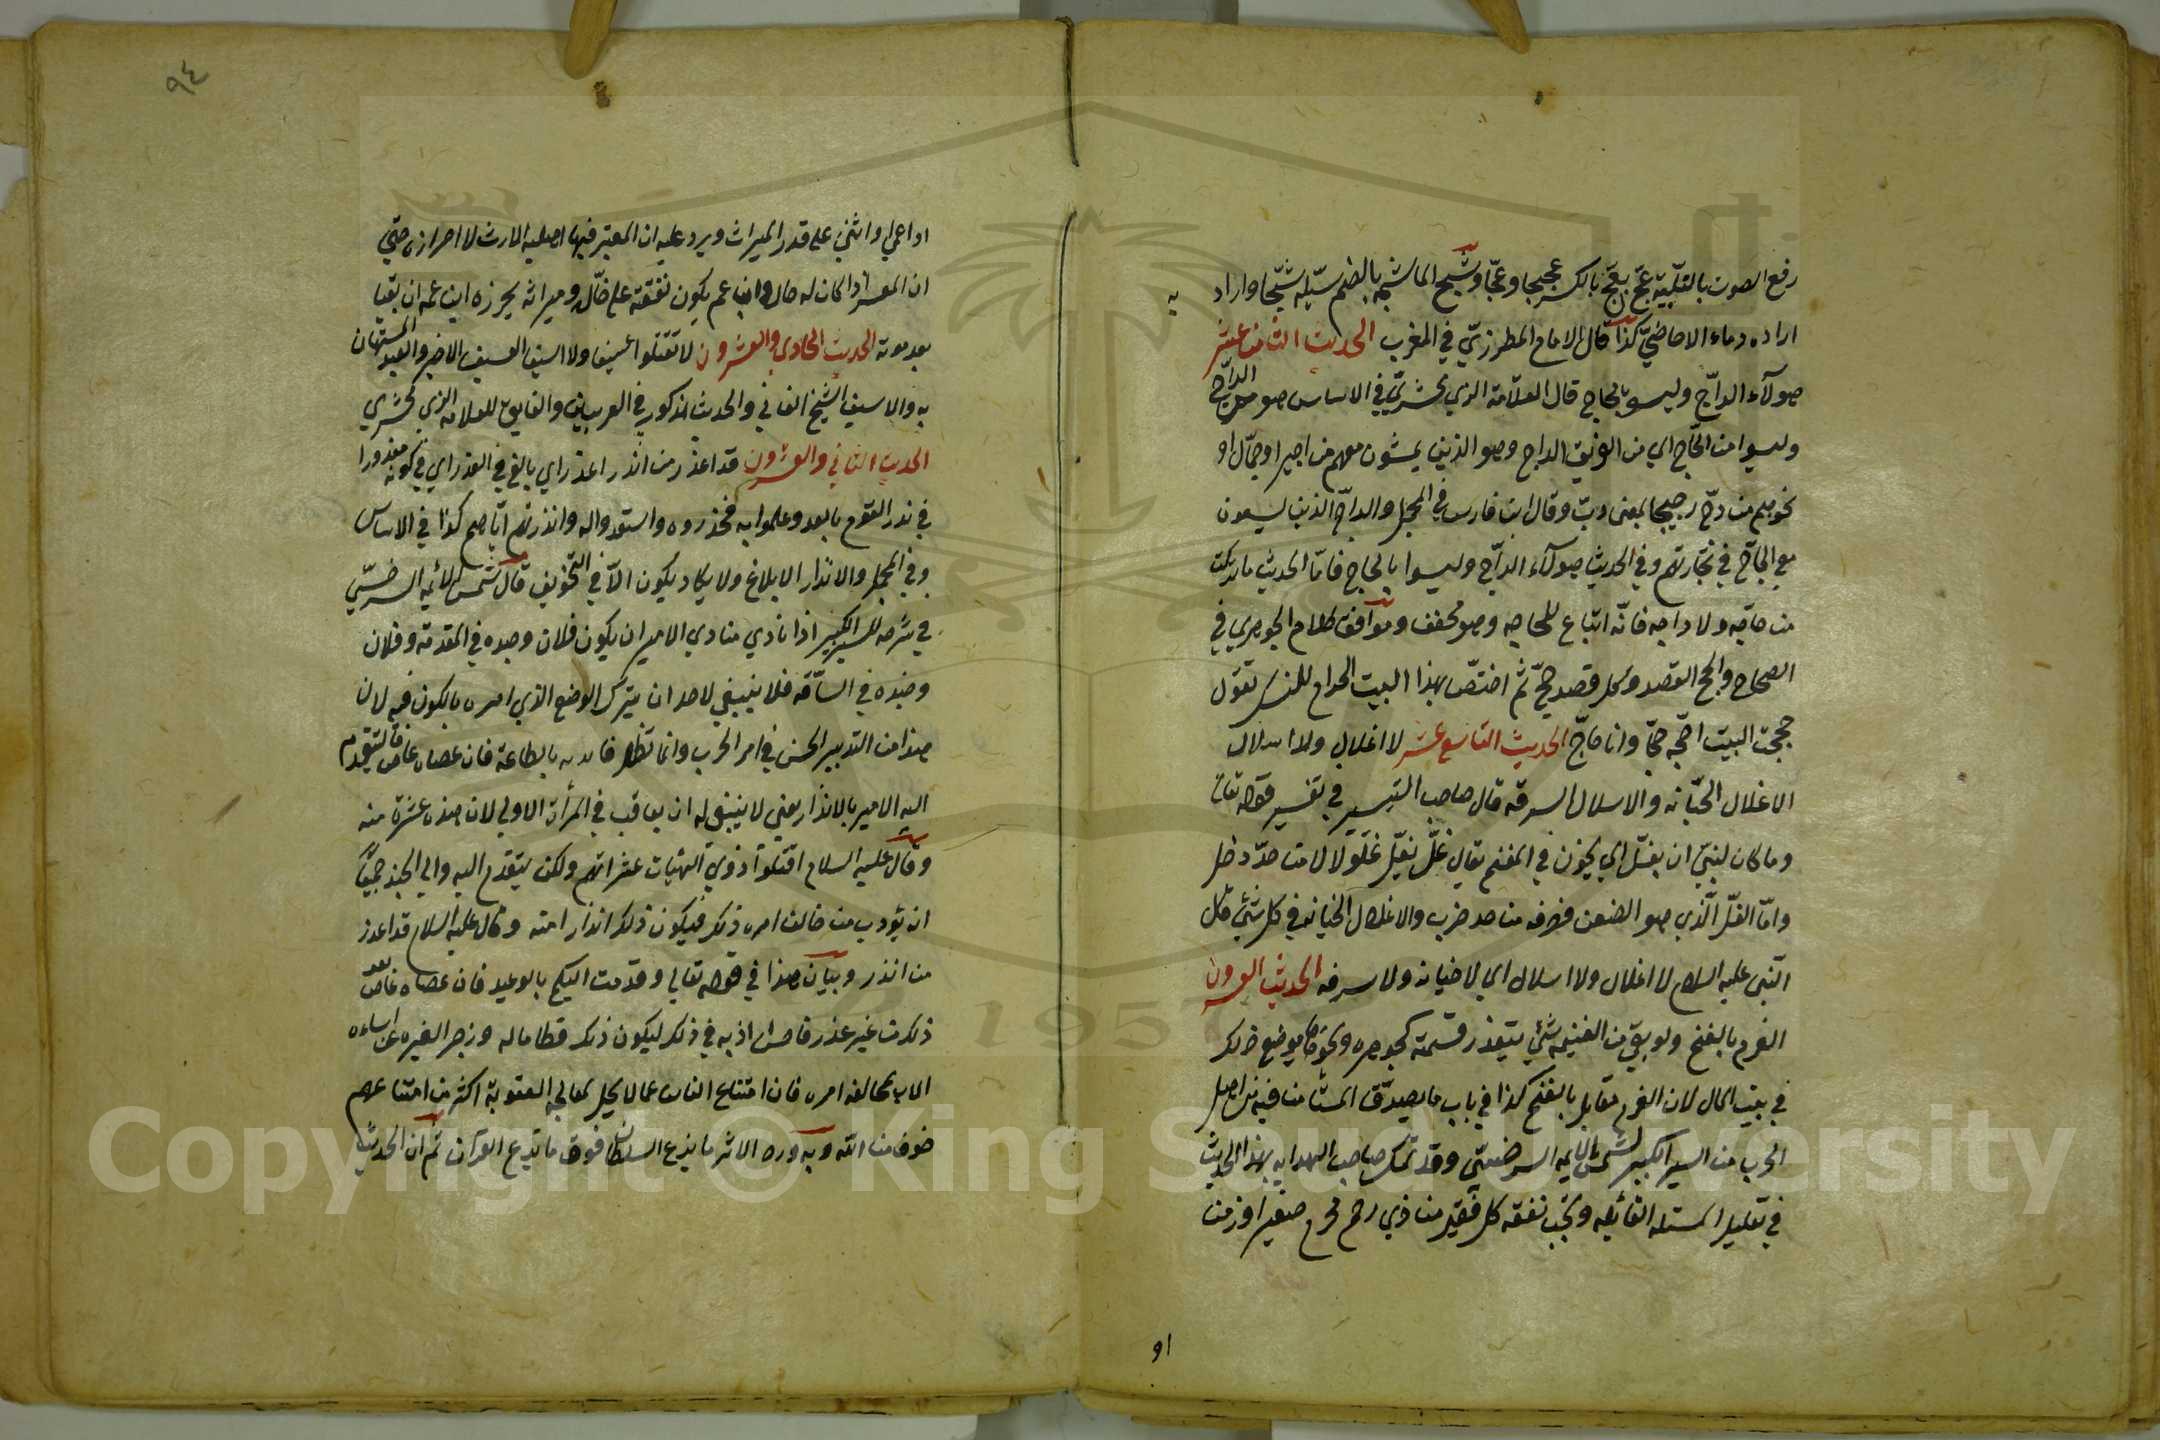 رفع الصوت بالتلبية عج يعج بالكسر عجيجا وعجّا وثج الماء يثج بالضم سيّله ثجّا واراد به
اراده دماء الاضاحي كذا قال الامام المطرزي في المغرب الحديث الثامن عشر
هولآء الداجّ وليسو بالحاج قال العلّامة الزمخشري في الاساس هو من الداجّ
وليسوا من الحاج اي من الفريق الداج وهو الذين يمشون معهم من اجير او جمّال او
نحوهم من دجّ دجيجا بمعنى دبّ وقال ابن فارس في المجمل والداجّ الذين يسعون
مع الحاجّ في تجارتهم وفي الحديث هولآء الداجّ وليسوا بالحاج فامّا الحديث ما تركت
من حاجه ولا داجه فانّه اتباع للحاجه وهو مخفف وموافق كلام الجوهري في
الصحاح والحج القصد وكل قصد حجّ ثم اختصّ بهذا البيت الحرام للنسك تقول
حججت البيت احجّه حجّا وانا حاجّ الحديث التاسع عشر لا اغلال ولا اسلال
الاغلال الخيانه والاسلال السرقه قال صاحب التيسير في تفسير قوله تعالى
وما كان لنبيّ ان يغلّ اي يخون في المغنم يقال غلّ يغلّ غلولا لا من حدّ دخل
وامّا الغلّ الّذي هو الضغن فصرفه من حد ضرب والاغلال الخيانه في كل شئ قال
النّبي عليه السلام لا اغلال ولا اسلال اي لا خيانه ولا سرقه الحديث العشرون
الغرم بالغنم ولو بقى من الغنيمه شئ يتعذر قسمته كجوهره ونحوها يوضع ذلك
في بيت المال لان الغرم مقابل بالغنم كذا في باب ما يصدّق المستأمن فيه من اهل
الحرب من السير الكبير لشمس الايمه السرخسيّ وقد تمسك صاحب الهدايه بهذا الحديث
في تعليل المسئله القائله وتجب نفقه كل فقير من ذي رحم محرم صغير او زمن
او
٩٤
او اعمى او انثى على قدر الميراث ويرد عليه ان المعتبر فيها اهلية الارث لا احرازه حتى
ان المعسر اذا كان له خال وابن عم يكون نفقته على خاله وميراثه يحرزه ابن عمه ان بقيا
بعد موته الحديث الحادي والعشرون لا تقتلوا عسيفا ولا اسيفا العسيف الاجير والعبد المستهان
به والاسيف الشيخ الفاني والحديث مذكور في الغريبين والفايق للعلامه الزمخشري
الحديث الثاني والعشرون قد اعذر من انذر اعذر اي بالغ في العذر اي في كونه معذورا
في نذر القوم بالعدو علموا به فحذروه واستعدوا له وانذرتهم ايّاهم كذا في الاساس
وفي المجمل والانذار الابلاغ ولا يكاد يكون الّا في التخويف قال شمس الائمه السرخسيّ
في شرحه للسير الكبير اذا نادي منادي الامير ان يكون فلان وجنده في المقدمة وفلان
وجنده في الساقه فلا ينبغي لاحد ان يترك الموضع الذي امره بالكون فيه لان
هذا من التدبير الحسن في امر الحرب وانما تظهر فايدته بالطاعة فان عصاه عاص فليتقدم
اليه الامير بالانذار يعني لا ينبغي له ان يعاقب في المرة الاولي لان هذه عثرة منه
وقال عليه السلام اقيلوا ذوي الهيئات عثراتهم ولكن يتقدم اليه والي الجند جميعا
ان يؤدب من خالف امره ذلك فيكون ذلك انذارا منه وقال عليه السلام قد اعذر
من انذر وبيان هذا في قوله تعالي وقد قدمت اليكم بالوعيد فان عصاه عاص بعد
ذلك من غير عذر فاحسن ادبه في ذلك ليكون ذلك فطاما له وزجرا لغيره عن اساءه
الادب بمخالفه امره فان امتناع الناس عما لا يحل لمعالجة العقوبة اكثر من امتناعهم
خوفا من اللّه وبه ورد الاثر ما يزع السلطان فوق ما يزع القرآن ثم ان الحديث